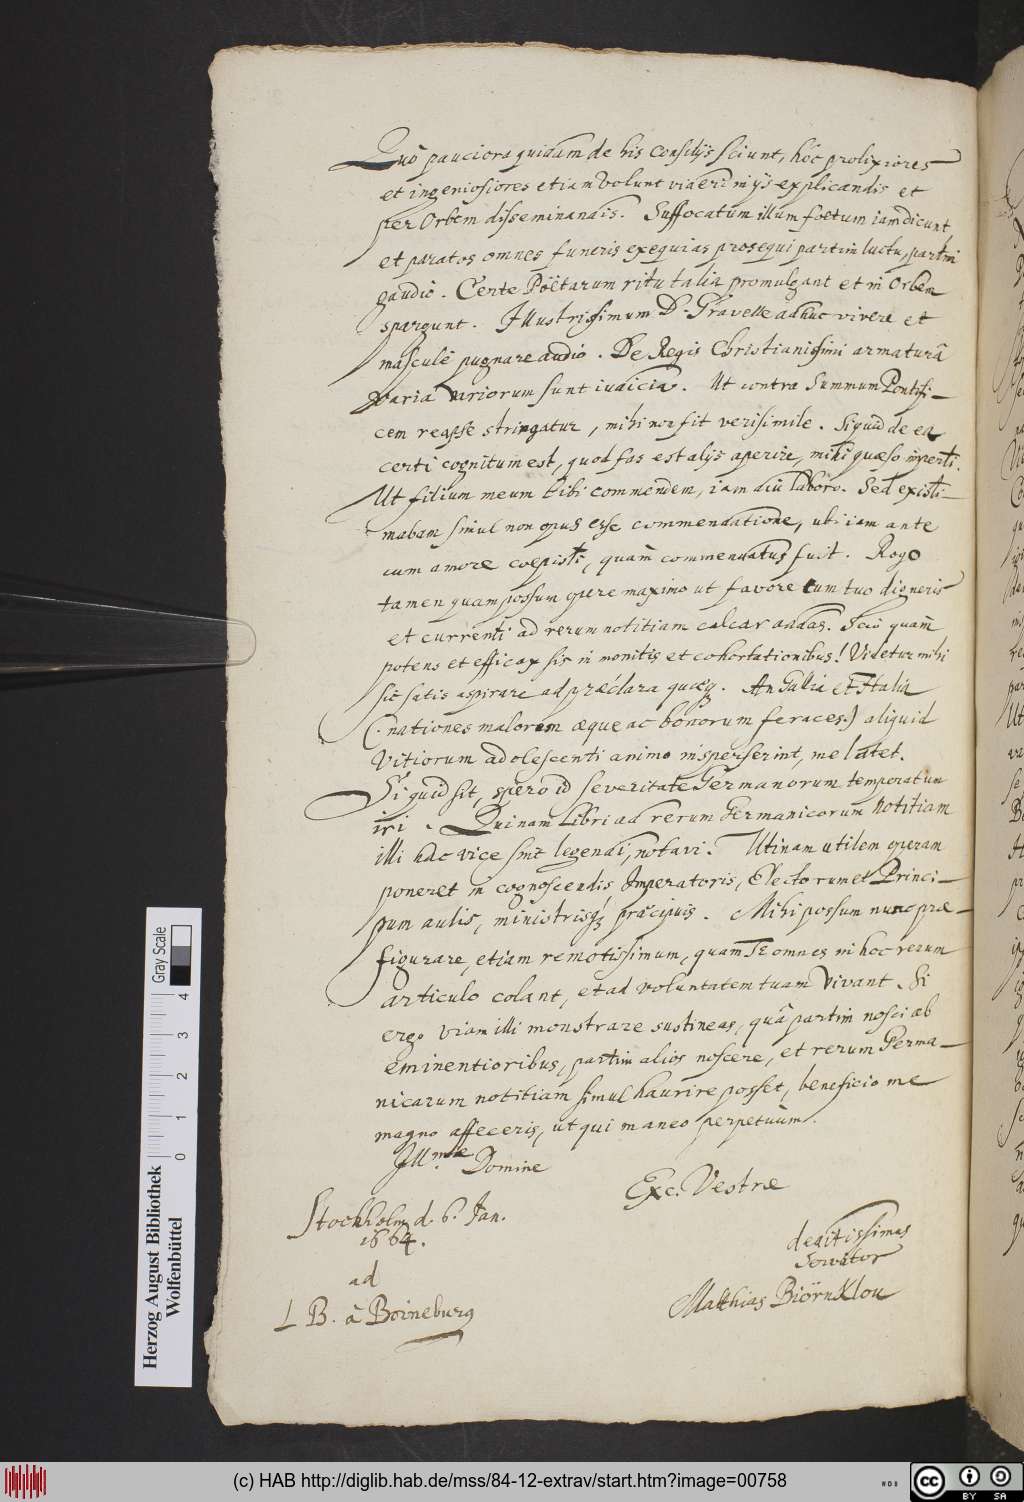 Quò pauciora quidam de his Consilijs sciunt, hôc prolixiores
et ingeniosiores etiam volunt videri in ijs explicandis et
per Orbem disseminandis. Suffocatum illum foetum iam dicunt
et paratos omnes funeris exequias prosequi partim luctu, partim
gaudiô. Certe Pöetarum ritu talia promulgant et in Orbem
spargunt. Illustrissimum D. Gravelle adhuc vivere et
masculè pugnare audio. De Regis Christianissimi armaturâ
varia variorum sunt iudicia. Ut contra Summum Pontifi-
cem reapse stringatur, mihi non fit verisimile. Si quid de ea
certi cognitum est, quod fas est alijs aperire, mihi quæso imperti.
Ut filium meum tibi commendem, iam diu laboro. Sed existi-
mabam simul non opus esse commendatione, ubi iam ante
eum amore coepisti, quàm commendatus fuit. Rogo
tamen quam possum opere maximo ut favore eum tuo digneris
et currenti ad rerum notitiam calcar addas. Scio quàm
potens et efficax sis in monitis et cohortationibus! Videtur mihi
sic satis aspirare ad præclara quæq. An Gallia et Italia
(: nationes malorum æque ac bonorum feraces:) aliquid
Vitiorum adolescenti animo insperserint, me latet.
Si quid sit, spero id severitate Germanorum temperatum
iri. Quinam Libri ad rerum Germanicarum notitiam
illi hac vice sint legendi, notavi. Utinam utilem operam
poneret in cognoscendis Imperatoris, Electorum et Princi-
pum aulis, ministrisq præcipuis. Mihi possum nunc præ-
figurare, etiam remotissimum, quam Te omnes in hoc rerum
articulo colant, et ad voluntatem tuam vivant. Si
ergo viam illi monstrare sustineas, quâ partim nosci ab
Eminentioribus, partim alios noscere, et rerum Germa-
nicarum notitiam simul haurire posset, beneficio me
magno affeceris, ut qui maneo perpetuùm.
Ill.mæ Domine
Exc. Vestræ
Stockholm d. 6. Jan.
1664.
deditissimus
Servitor
ad
Matthias Biörnklou
L B. â Boineburg
Herzog August Bibliothek
Wolfenbüttel
0 1 2 3 4
Gray Scale
(c) HAB http://diglib.hab.de/mss/84-12-extrav/start.htm?image=00758
WDB
cc BY SA